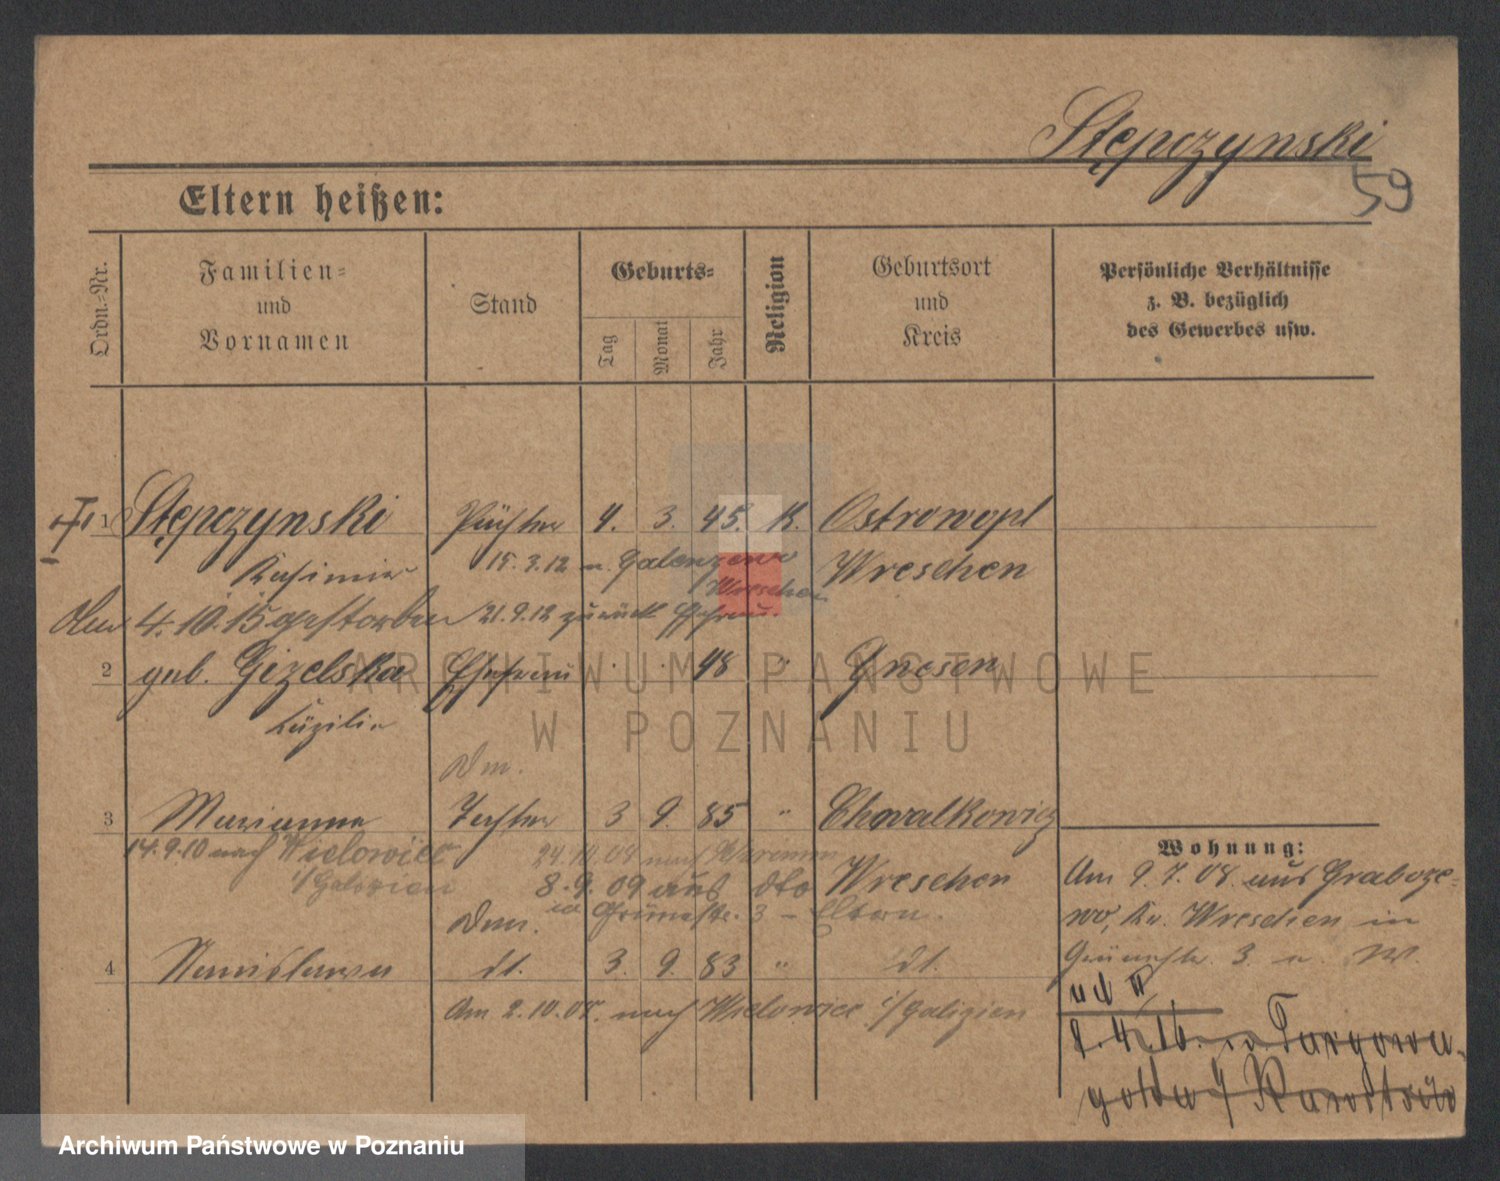 Stępczynski
59
Eltern heißen:
Ordn.-Nr.
Familien-
und
Vornamen
Stand
Geburts-
Tag
Monat
Jahr
Religion
Geburtsort
und
Kreis
Persönliche Verhältnisse
z. B. bezüglich
des Gewerbes usw.
1 Stępczynski Pächter 4. 3. 45. K. Ostrowopl
Kasimir 15.3.12 n. Galenzewo Wreschen
Wreschen
4.10.15 gestorben 21.9.12 zurück
2 geb. Gizelska Ehefrau 48 " Gnesen
Cäzilie
ARCHIWUM PAŃSTWOWE
W POZNANIU
Dm.
3 Marianna Tochter 3 9. 85 " Chwalkowicz
14.9.10 nach Wielowice 24.10.08 nach
i/Galizien 8.9.09 aus dto Wreschen
Dm. Grünestr. 3 - Eltern.
4 Stanislawa dt. 3. 9. 83 " dt.
Am 2.10.08. nach Wielowice i/Galizien
Wohnung:
Am 9.7.08. aus Graboze-
wo, Kr. Wreschen in
Grünestr. 3. n. W.
Targowa-
Archiwum Państwowe w Poznaniu